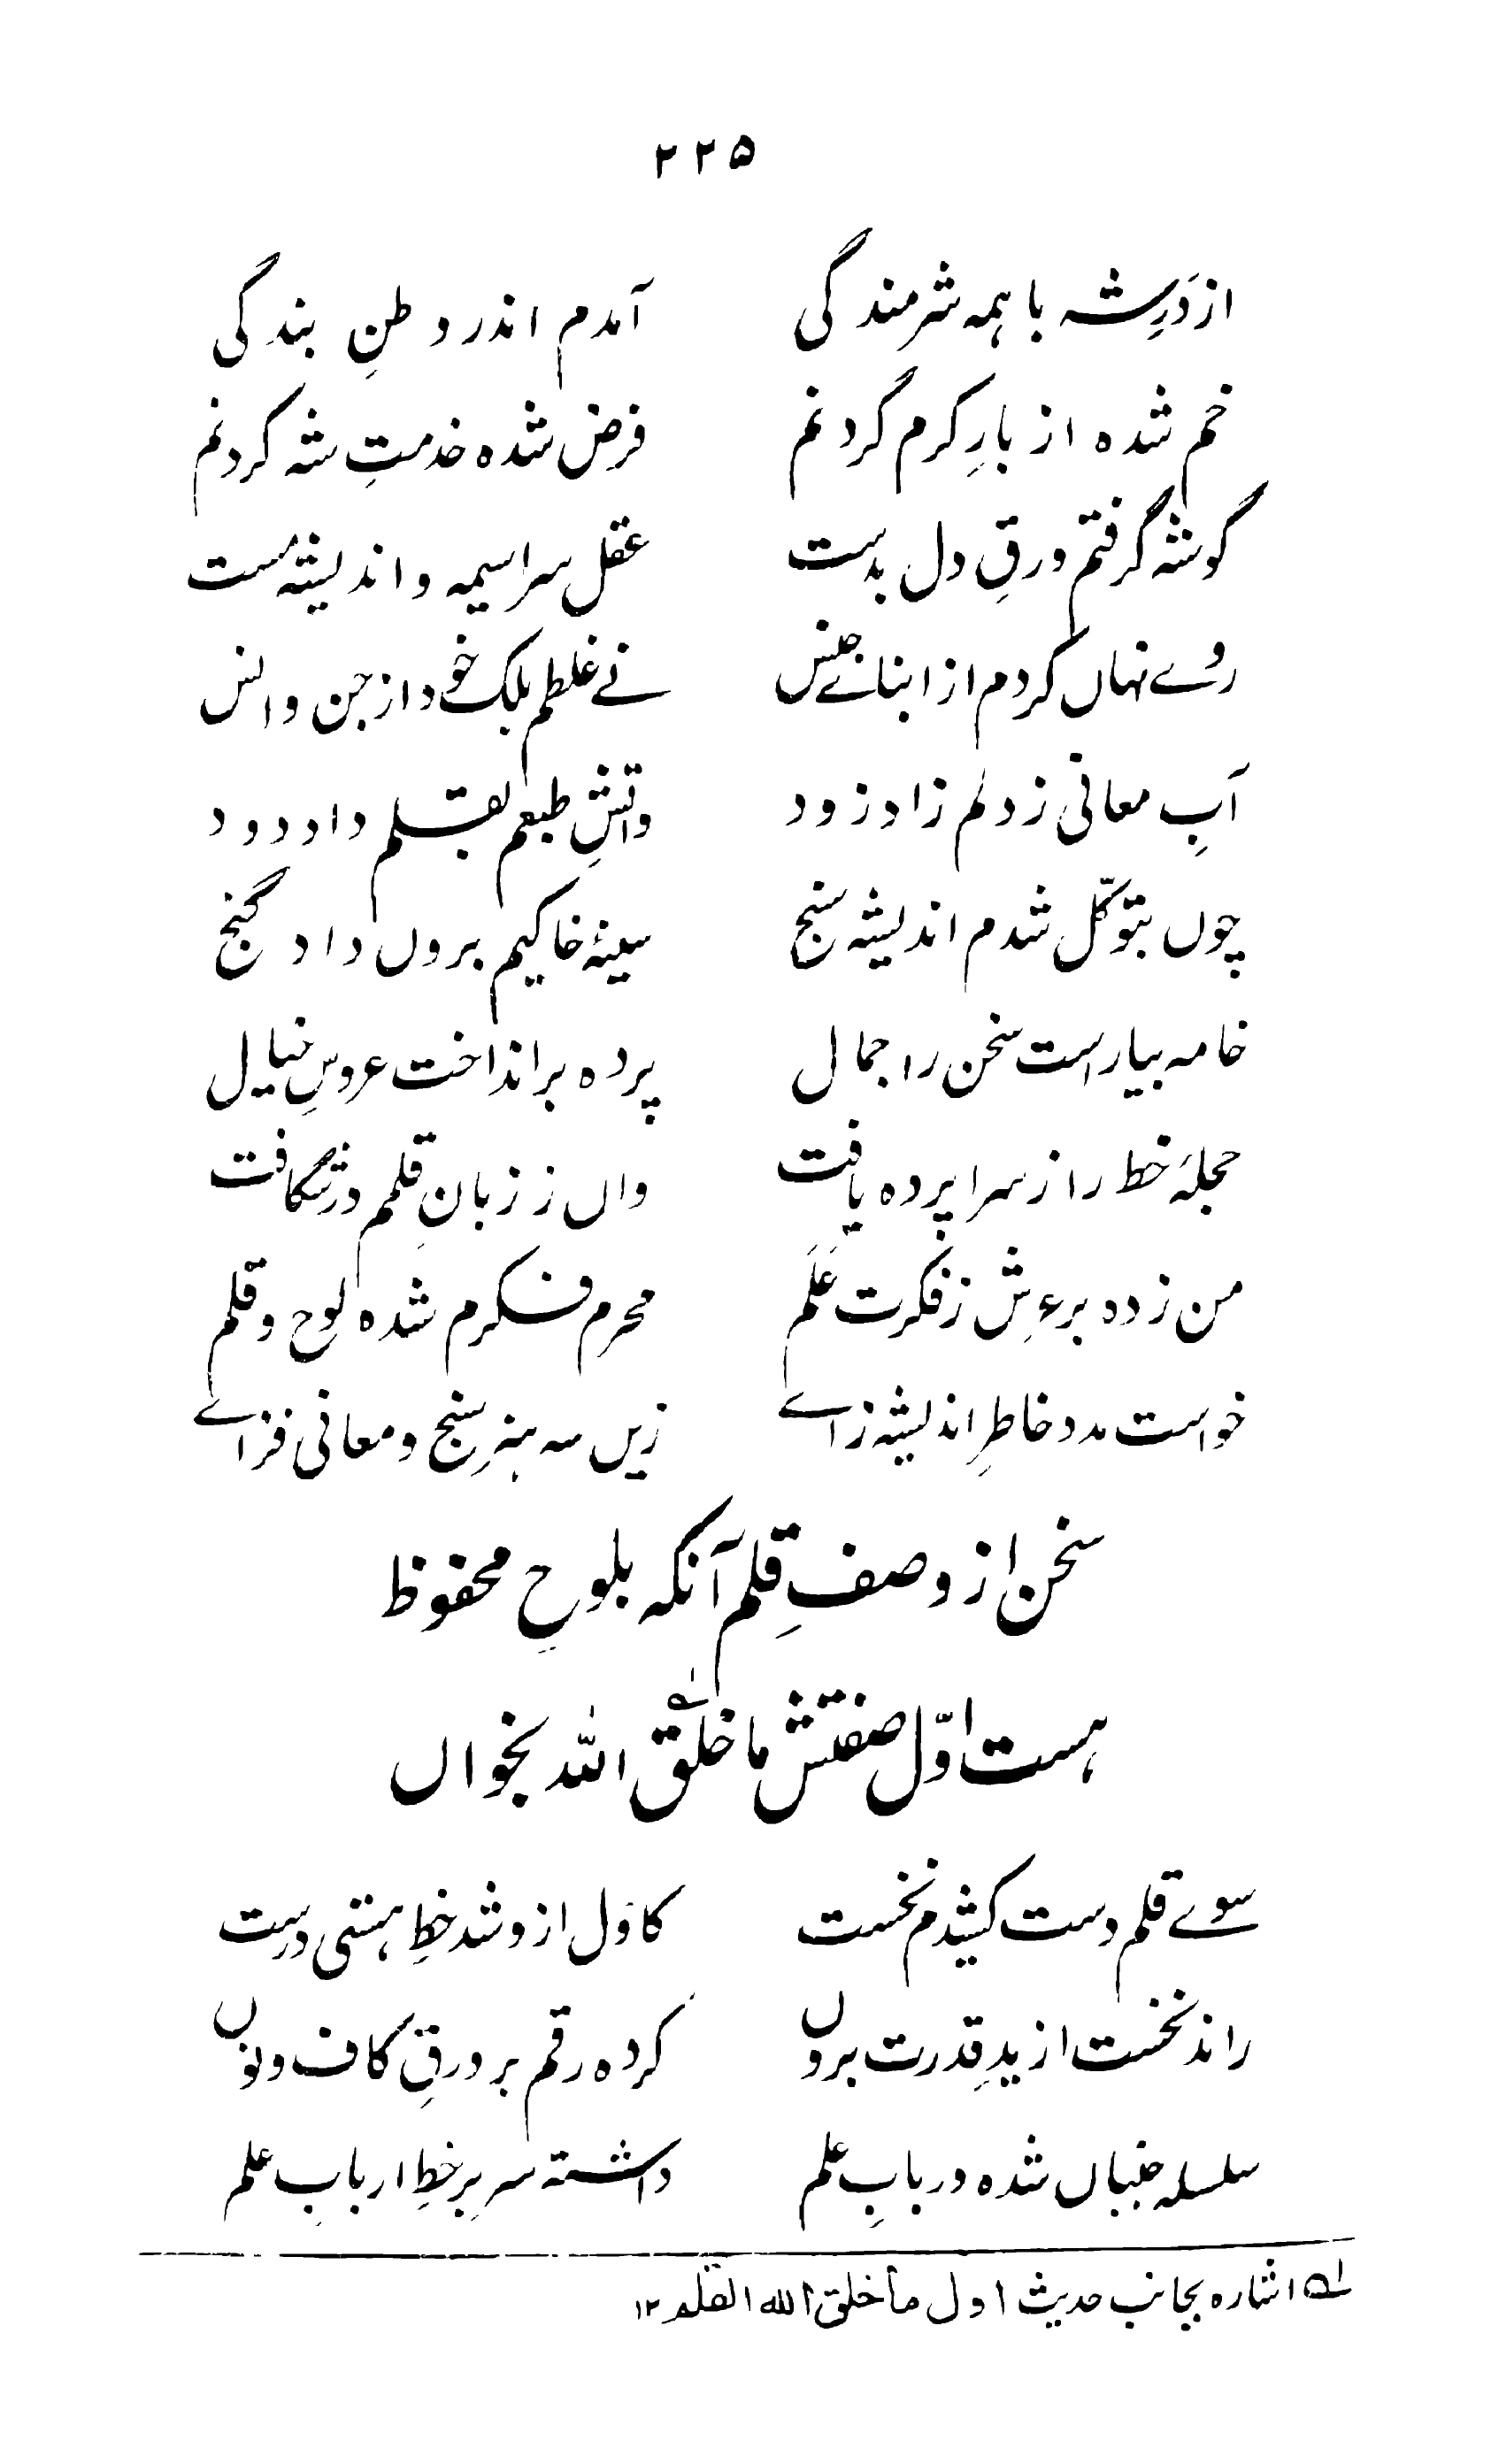 ۲۲۵
از درِ شہ با ہمہ شرمندگی آمدم اندر وطنِ بندگی
خم شدہ از بارِ کرم گردنم فرض شدہ خدمتِ شہ کردنم
گوشہ گرفتم ورقِ دل بدست عقل سراسیمہ و اندیشہ مست
روے نہاں کردم از ابنائے جنس نے غلطم بلک خود از جن و انس
آبِ معانی ز دلم زاد زود واتشِ طبعم بقلم داد دود
چوں بتوکّل شدم اندیشہ سنج سینۂ خاکیم بروں داد گنج
خامہ بیاراست سخن را جمال پردہ بر انداخت عروسِ خیال
حجلۂ خط را ز سرا پردہ یافت واں ز زبانِ قلمم در شگافت
من زدہ بر عرش ز فکرت عَلَم محرم فکرم شدہ لوح و قلم
خواست مدد خاطرِ اندیشہ زاے زیں سہ ہنر سنج و معانی فزاے
سخن از وصفِ قلم آنکہ بلوحِ محفوظ
ہست اوّل صفتش ما خلق اللہ بخواں
سوے قلم دست کشیدم نخست کاول ازو شد خطِ ہستی درست
راند نخست از یدِ قدرت بروں کردہ رقم بر ورقِ کاف و نوں
سلسلہ جنباں شدہ در بابِ علم داشتہ سر بر خطِ اربابِ علم
لہ اشارہ بجانب حدیث اول ما خلق اللہ القلم ۱۲